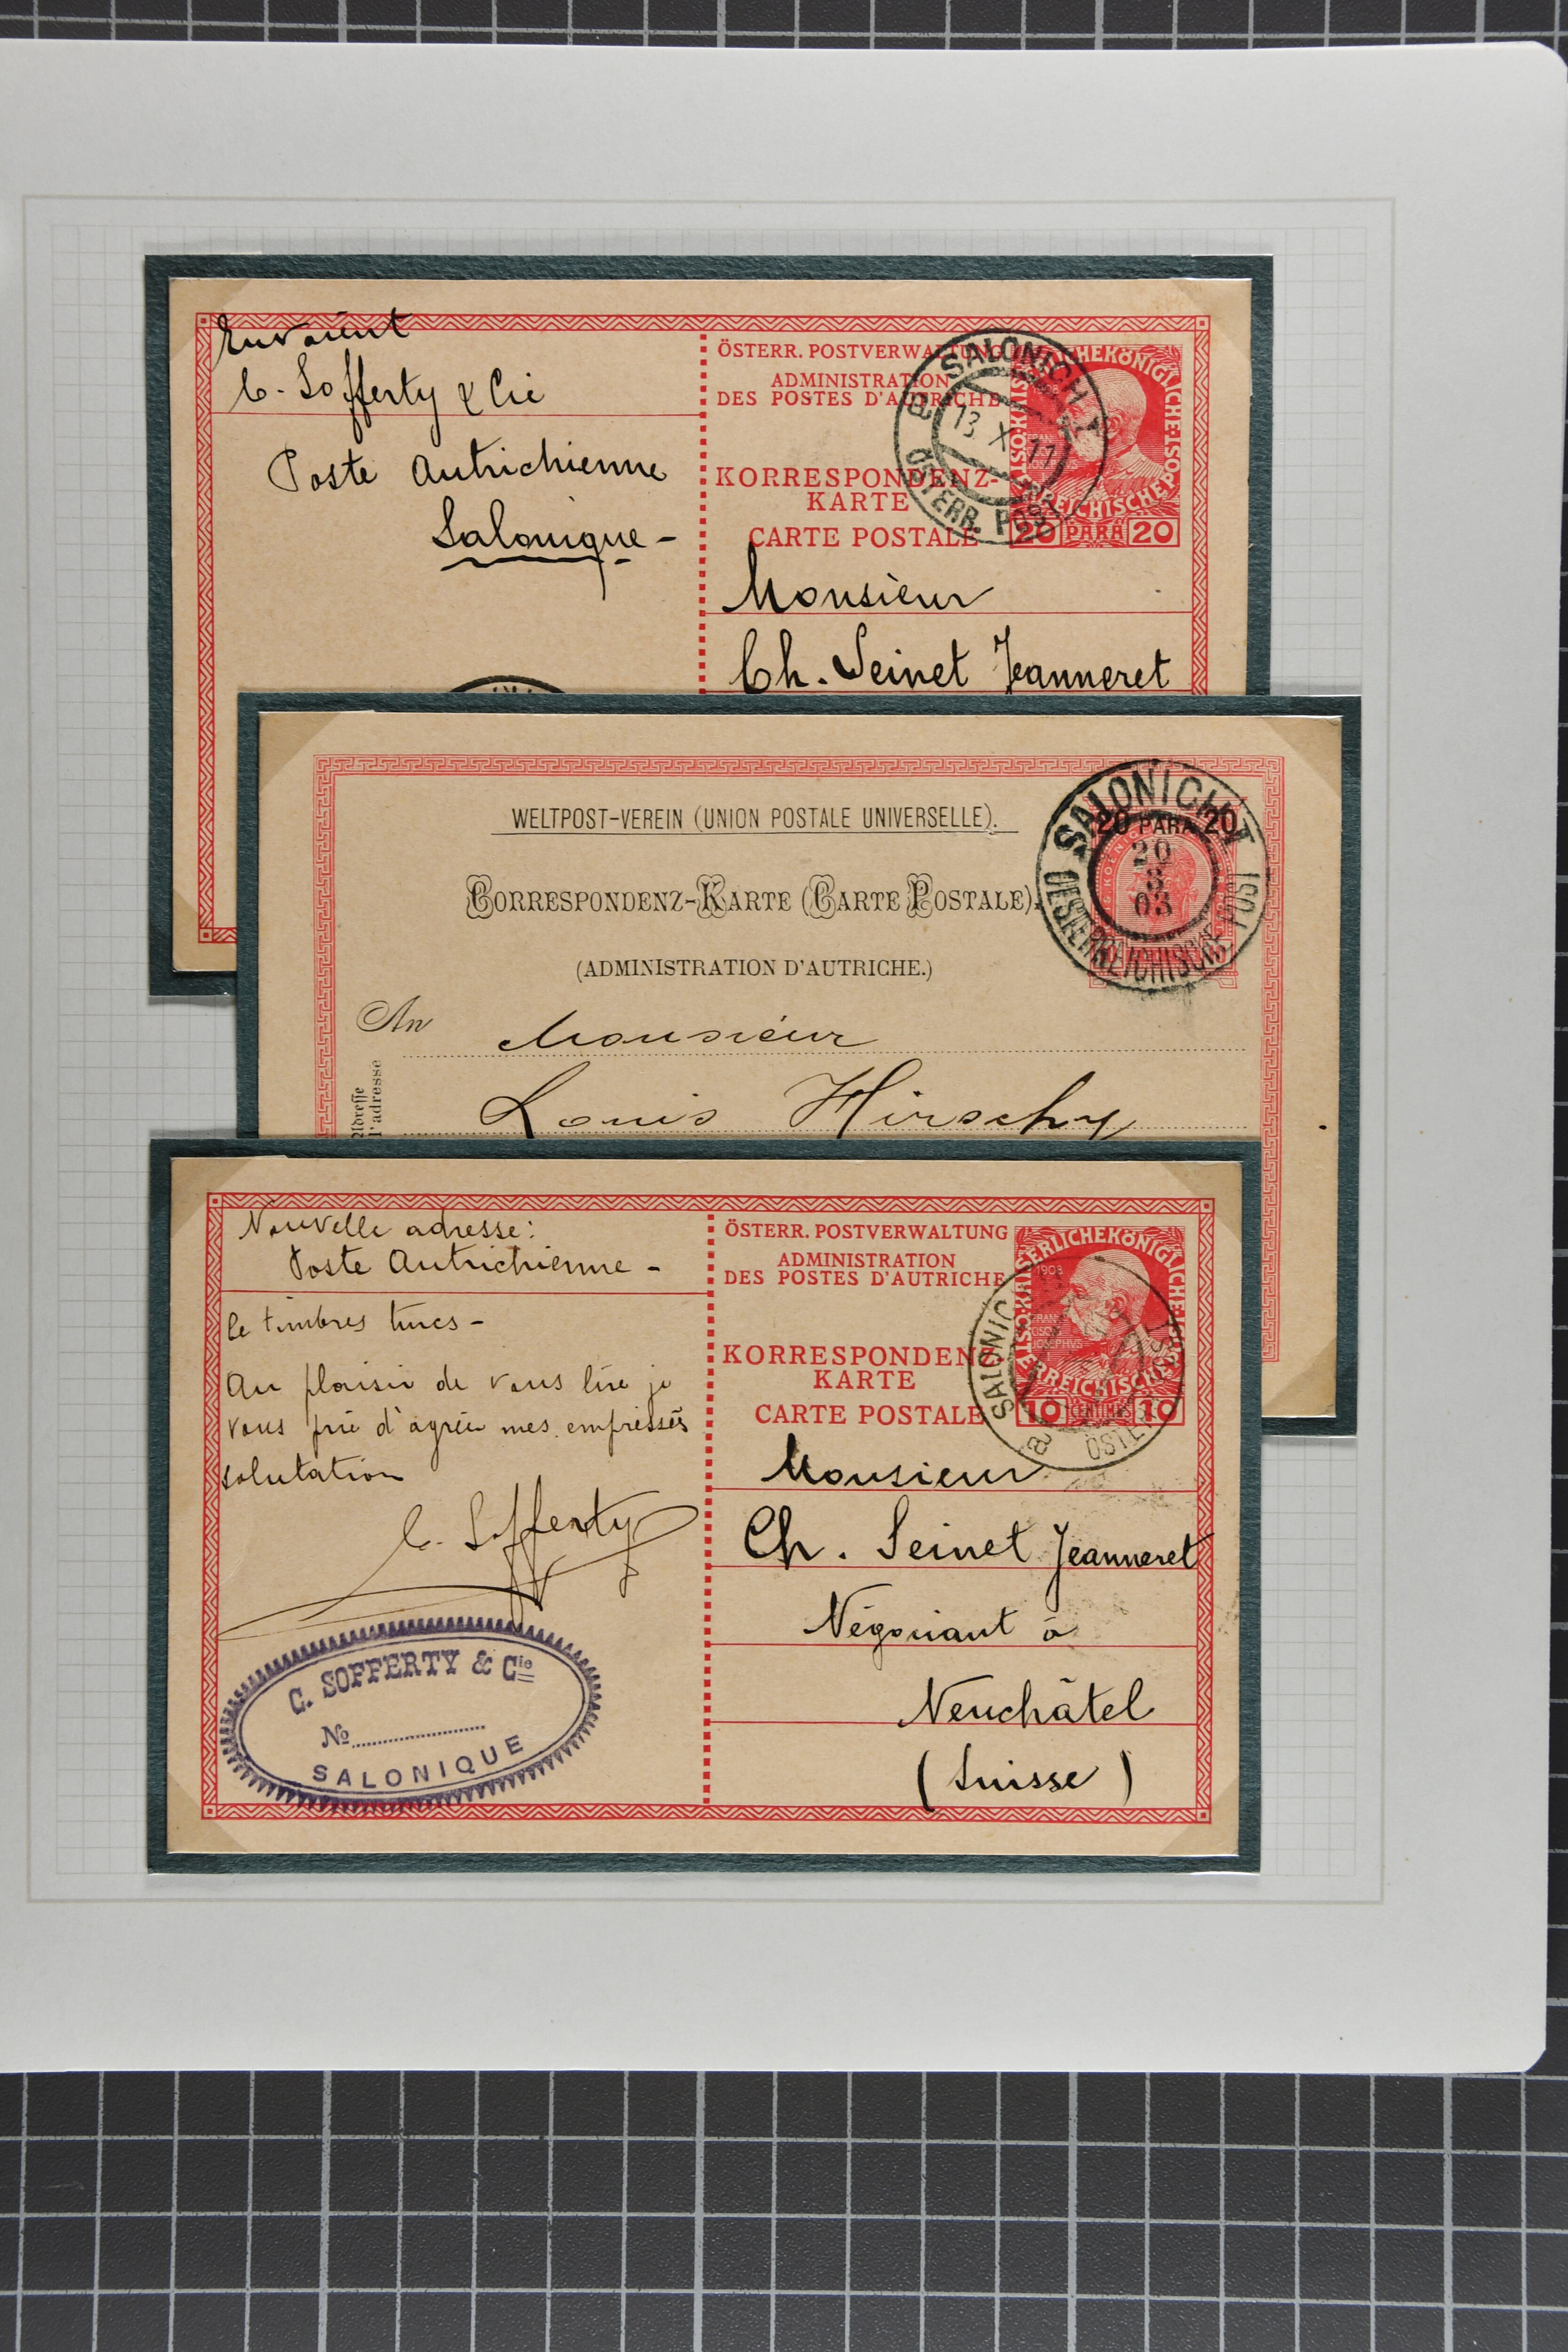 Envoient
C. Sofferty & Cie
Poste Autrichienne
Salonique -
ÖSTERR. POSTVERWALTUNG
ADMINISTRATION
DES POSTES D'AUTRICHE
KORRESPONDENZ-
KARTE
CARTE POSTALE
KAISERLICHEKÖNIGLICHE ÖSTERREICHISCHE POST
20 PARA 20
SALONICH 1
13 X 11
a
ÖSTERR. POST
Monsieur
Ch. Seinet Jeanneret
WELTPOST-VEREIN (UNION POSTALE UNIVERSELLE).
CORRESPONDENZ-KARTE (CARTE POSTALE).
(ADMINISTRATION D'AUTRICHE.)
20 PARA 20
SALONICH 1
20
8
03
OESTERREICHISCHE POST
An Monsieur
Louis Hirschy
Adresse
l'adresse
Nouvelle adresse:
Poste Autrichienne -
le timbres turcs -
Au plaisir de vous lire je
vous prie d'agréer mes empressés
salutation
C. Sofferty
C. SOFFERTY & Cie
No
SALONIQUE
ÖSTERR. POSTVERWALTUNG
ADMINISTRATION
DES POSTES D'AUTRICHE
KORRESPONDENZ-
KARTE
CARTE POSTALE
KAISERLICHEKÖNIGLICHE ÖSTERREICHISCHE
1908
FRAN
IOSE
IOSEPHVS
10 CENTIMES 10
SALONIC
a
Monsieur
Ch. Seinet Jeanneret
Négociant à
Neuchâtel
(Suisse)